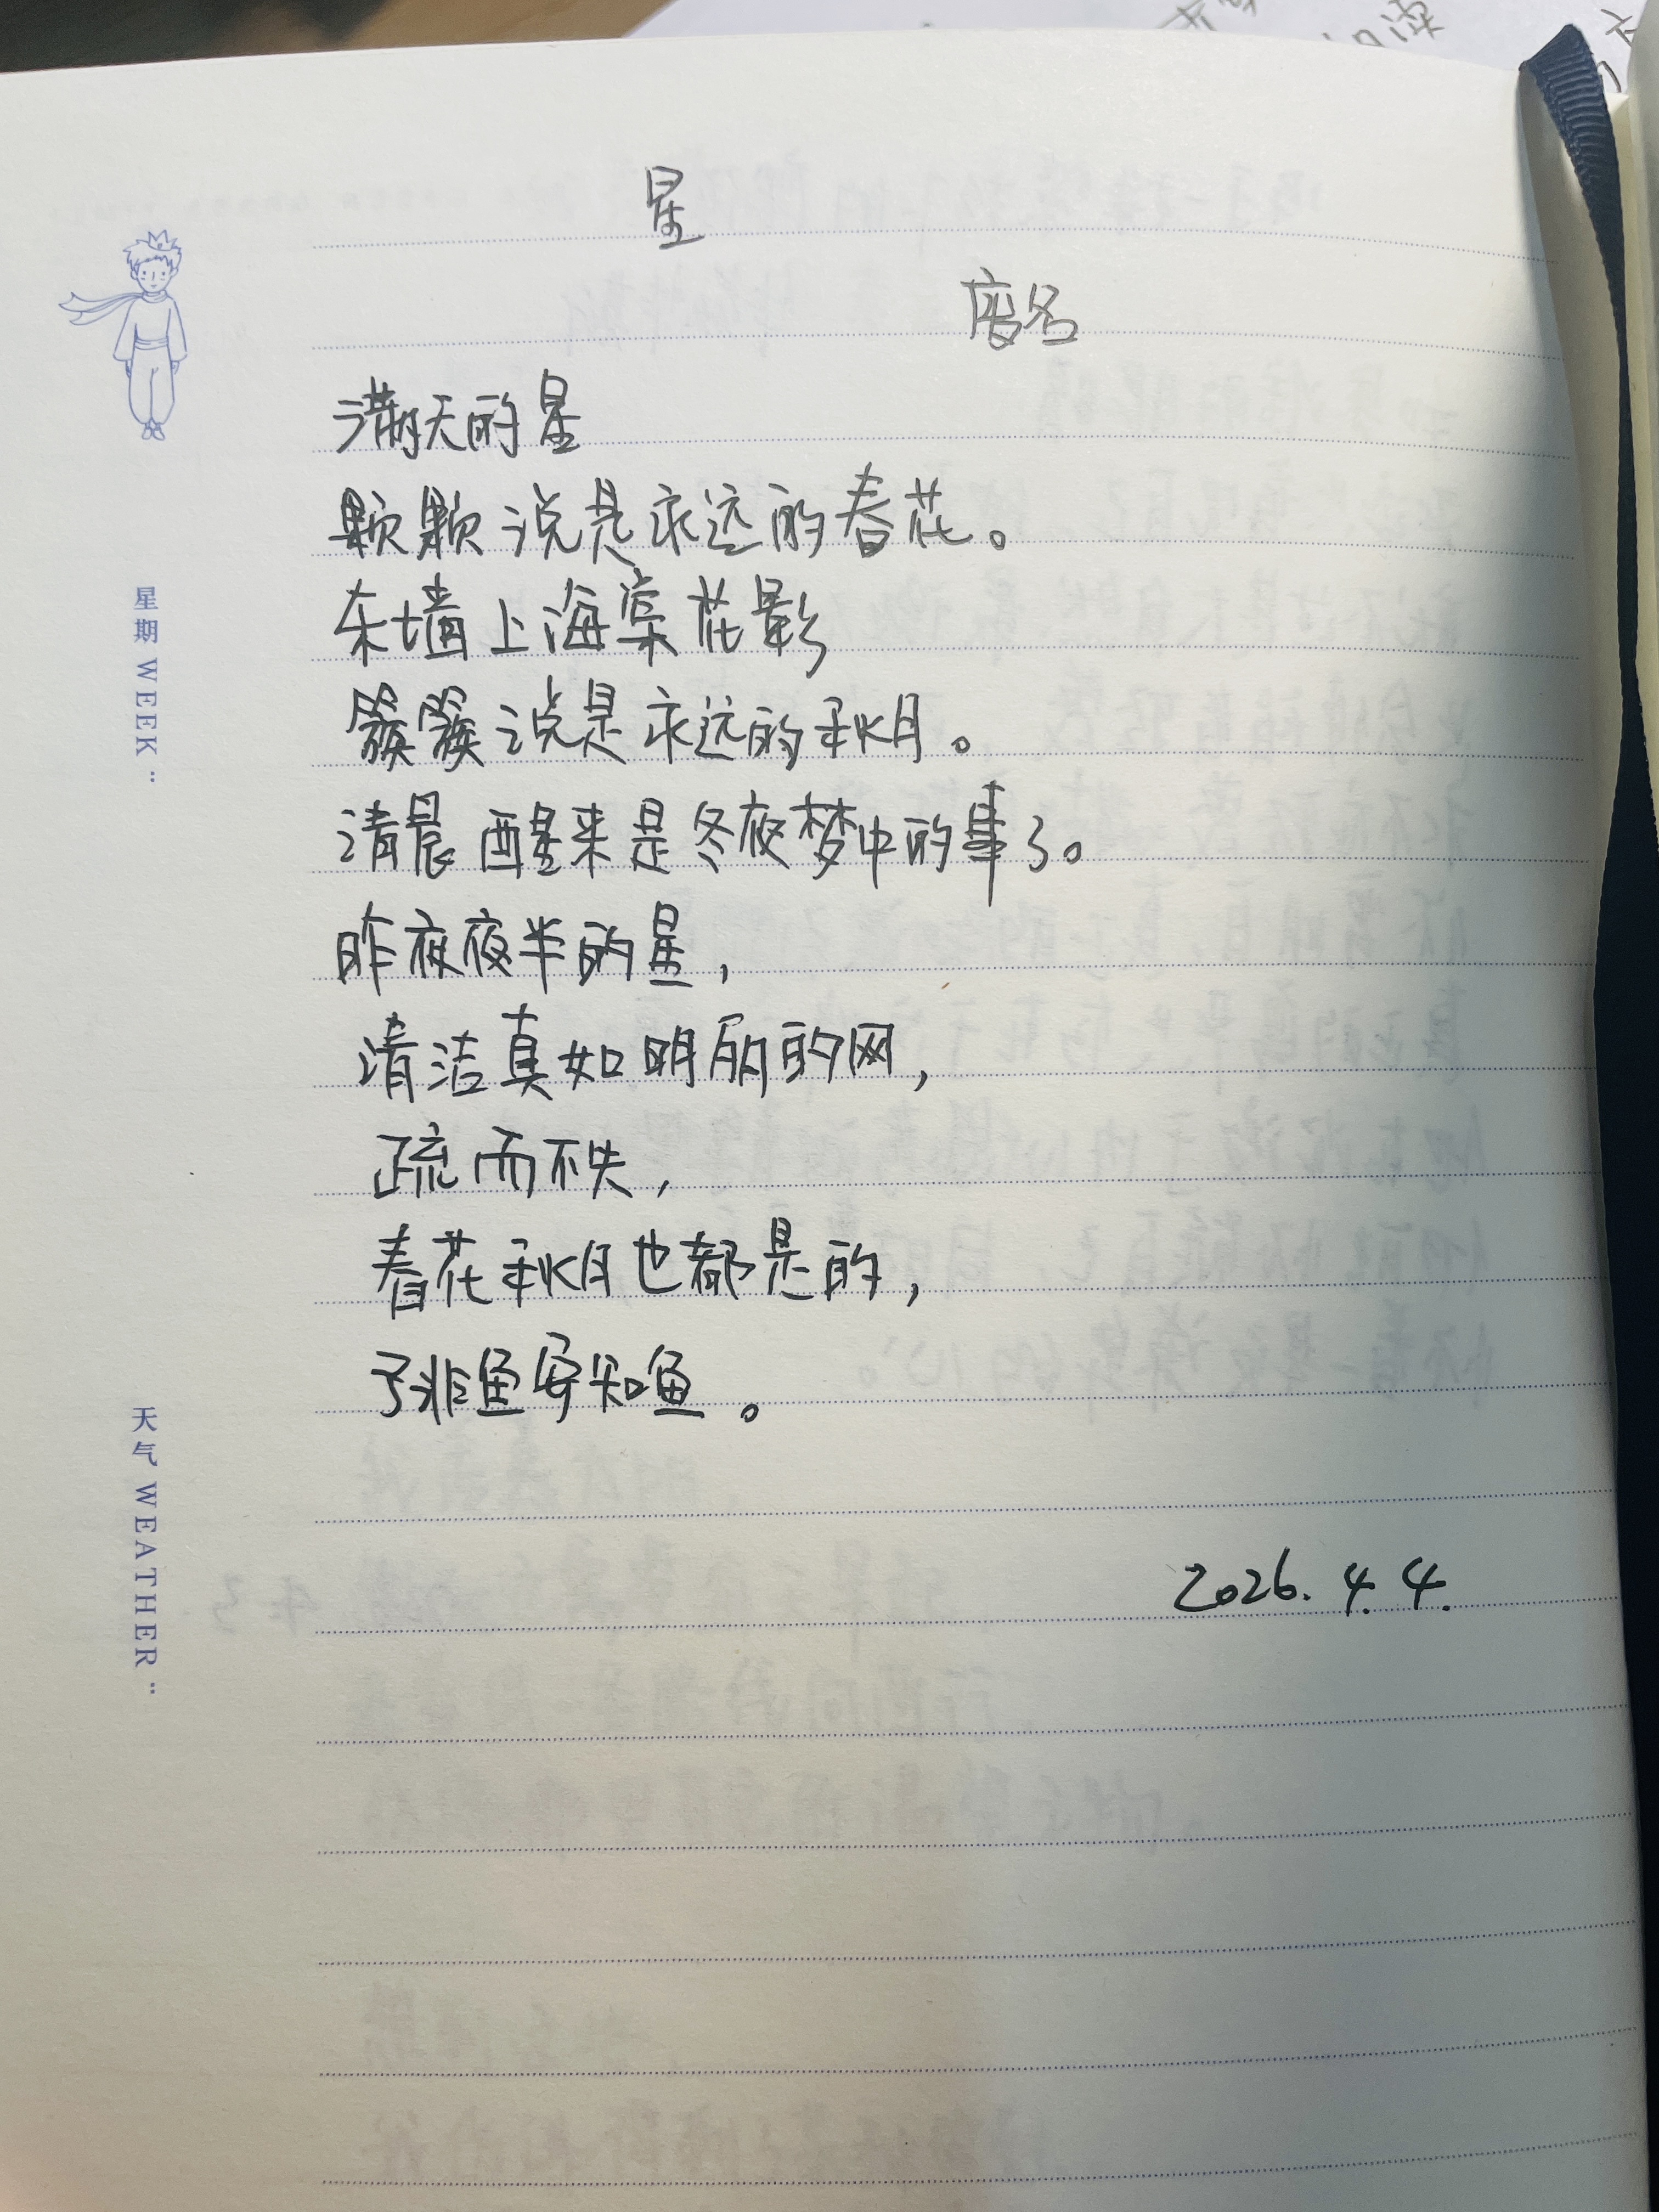 星
废名
满天的星
颗颗说是永远的春花。
东墙上海棠花影
簇簇说是永远的秋月。
清晨醒来是冬夜梦中的事了。
昨夜夜半的星，
清洁真如明丽的网，
疏而不失，
春花秋月也都是的，
子非鱼安知鱼。
2026.4.4.
星期 WEEK:
天气 WEATHER: